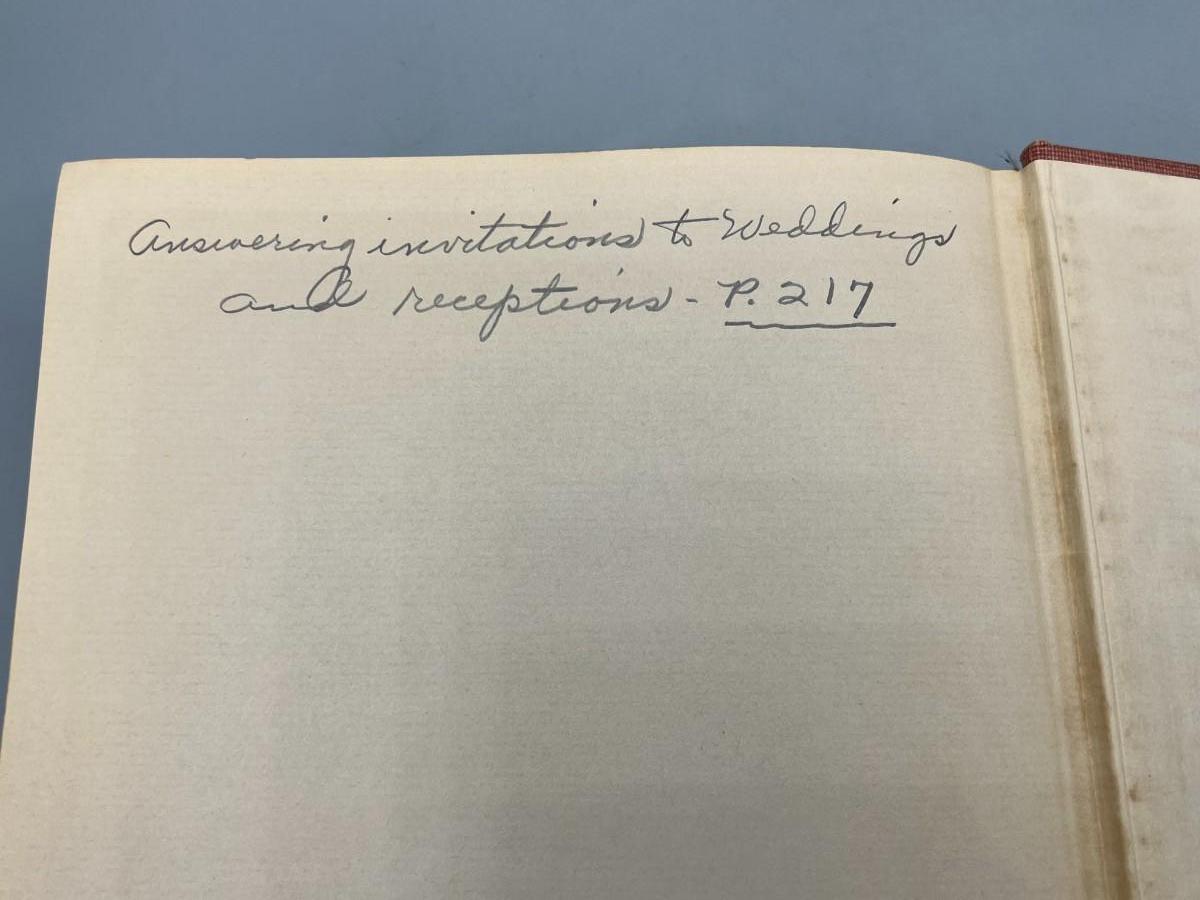 Answering invitations to Weddings
and receptions - P. 217